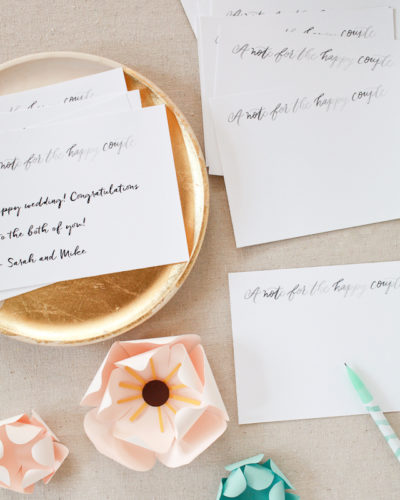 happy couple
note for the happy couple
appy wedding! Congratulations
to the both of you!
- Sarah and Mike
A note for the happy couple
A note for the happy couple
A note for the happy couple